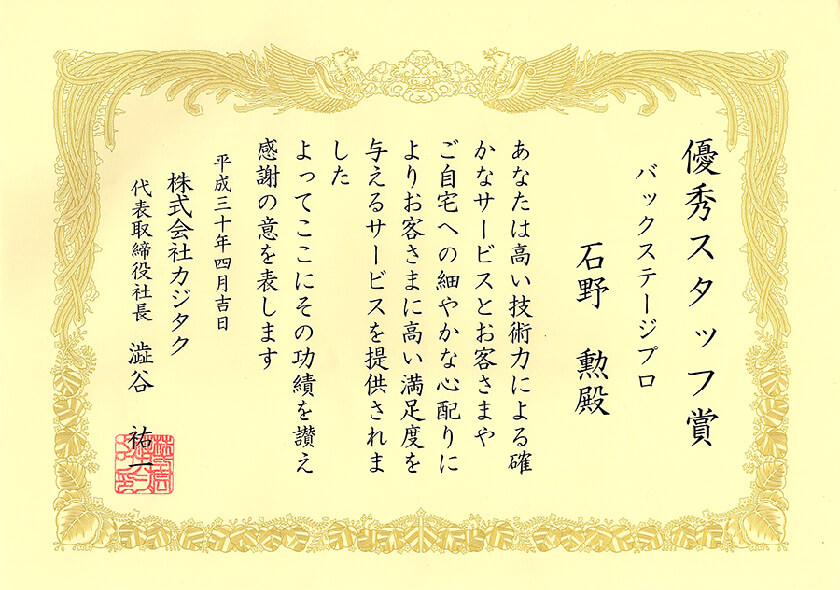 優秀スタッフ賞
バックステージプロ
石野 勲殿
あなたは高い技術力による確
かなサービスとお客さまや
ご自宅への細やかな心配りに
よりお客さまに高い満足度を
与えるサービスを提供されま
した
よってここにその功績を讃え
感謝の意を表します
平成三十年四月吉日
株式会社カジタク
代表取締役社長 澁谷 祐一